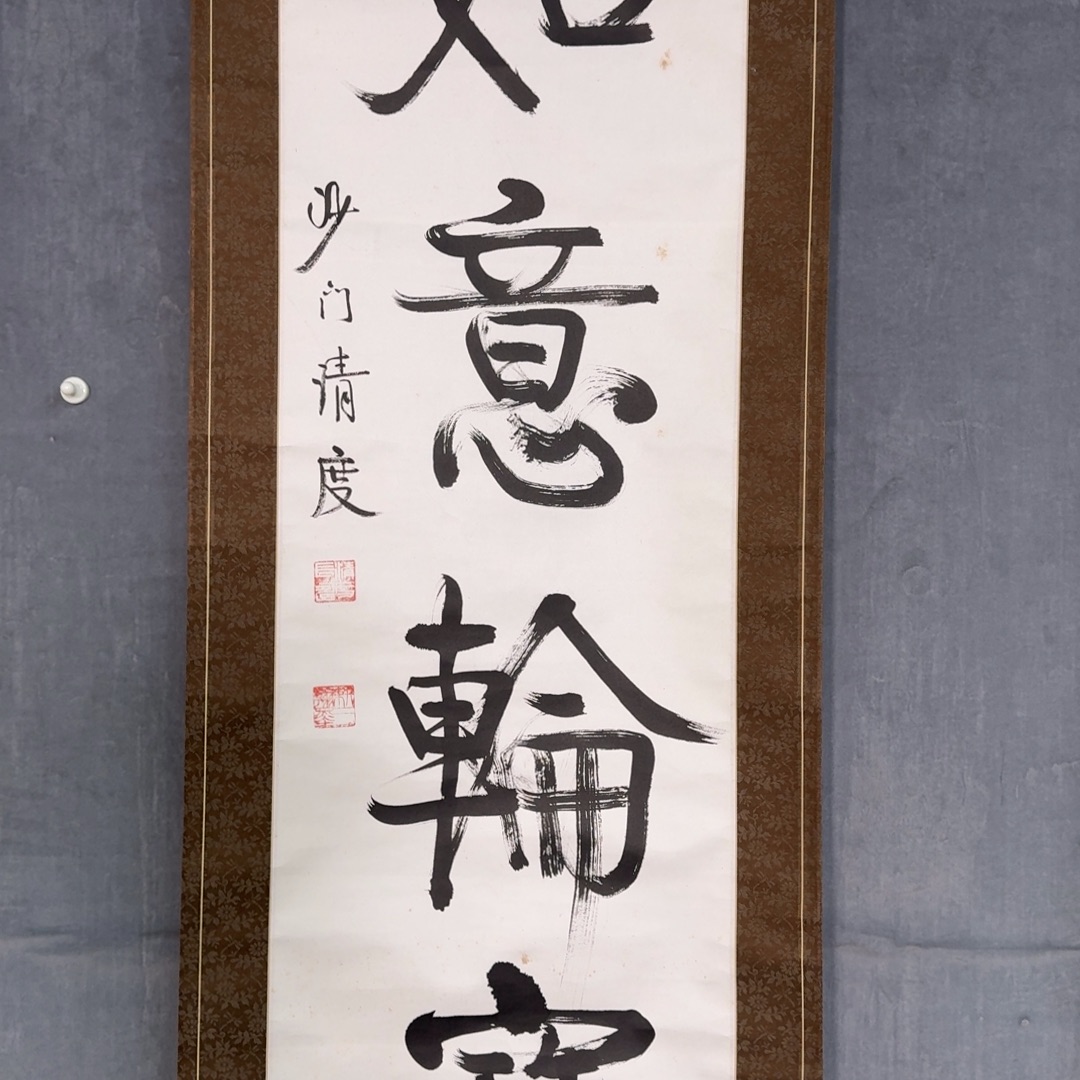 如意輪
沙门清度